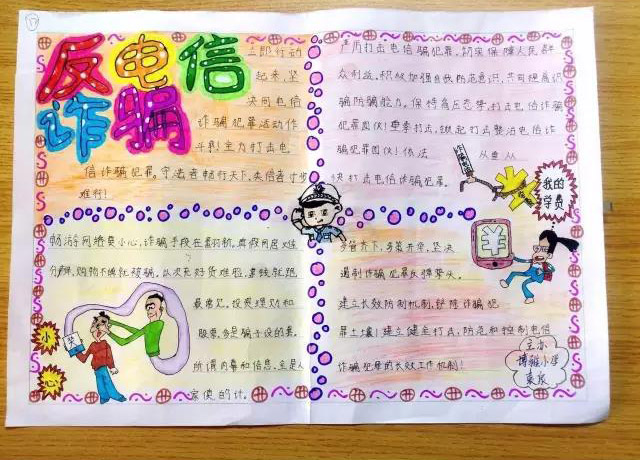 反电信
诈骗
立即行动
起来,坚
决同电信
诈骗犯罪活动作
斗争!全力打击电
信诈骗犯罪。守法者畅行天下,失信者寸步
难行!
严厉打击电信诈骗犯罪,切实保障人民群
众利益,积极加强自我防范意识,共同提高识
骗防骗能力,保持高压态势,打击电信诈骗
犯罪团伙!要素打击,掀起打击整治电信诈
骗犯罪团伙!依法 从重从
快打击电信诈骗犯罪。
我的
学费
畅游网络莫小心,诈骗手段在翻新,真假网店难
分辨,购物不慎就被骗。以次充好货难验,拿钱就跑
最常见。投资理财和
股票,多是骗子设的套。
所谓内幕和信息,全是人
家使的计。
小
心
多管齐下,多策并举,坚决
遏制诈骗犯罪反弹势头。
建立长效防制机制,铲除诈骗犯
罪土壤!建立健全打击,防范和控制电信
诈骗犯罪的长效工作机制!
¥
博雅小学